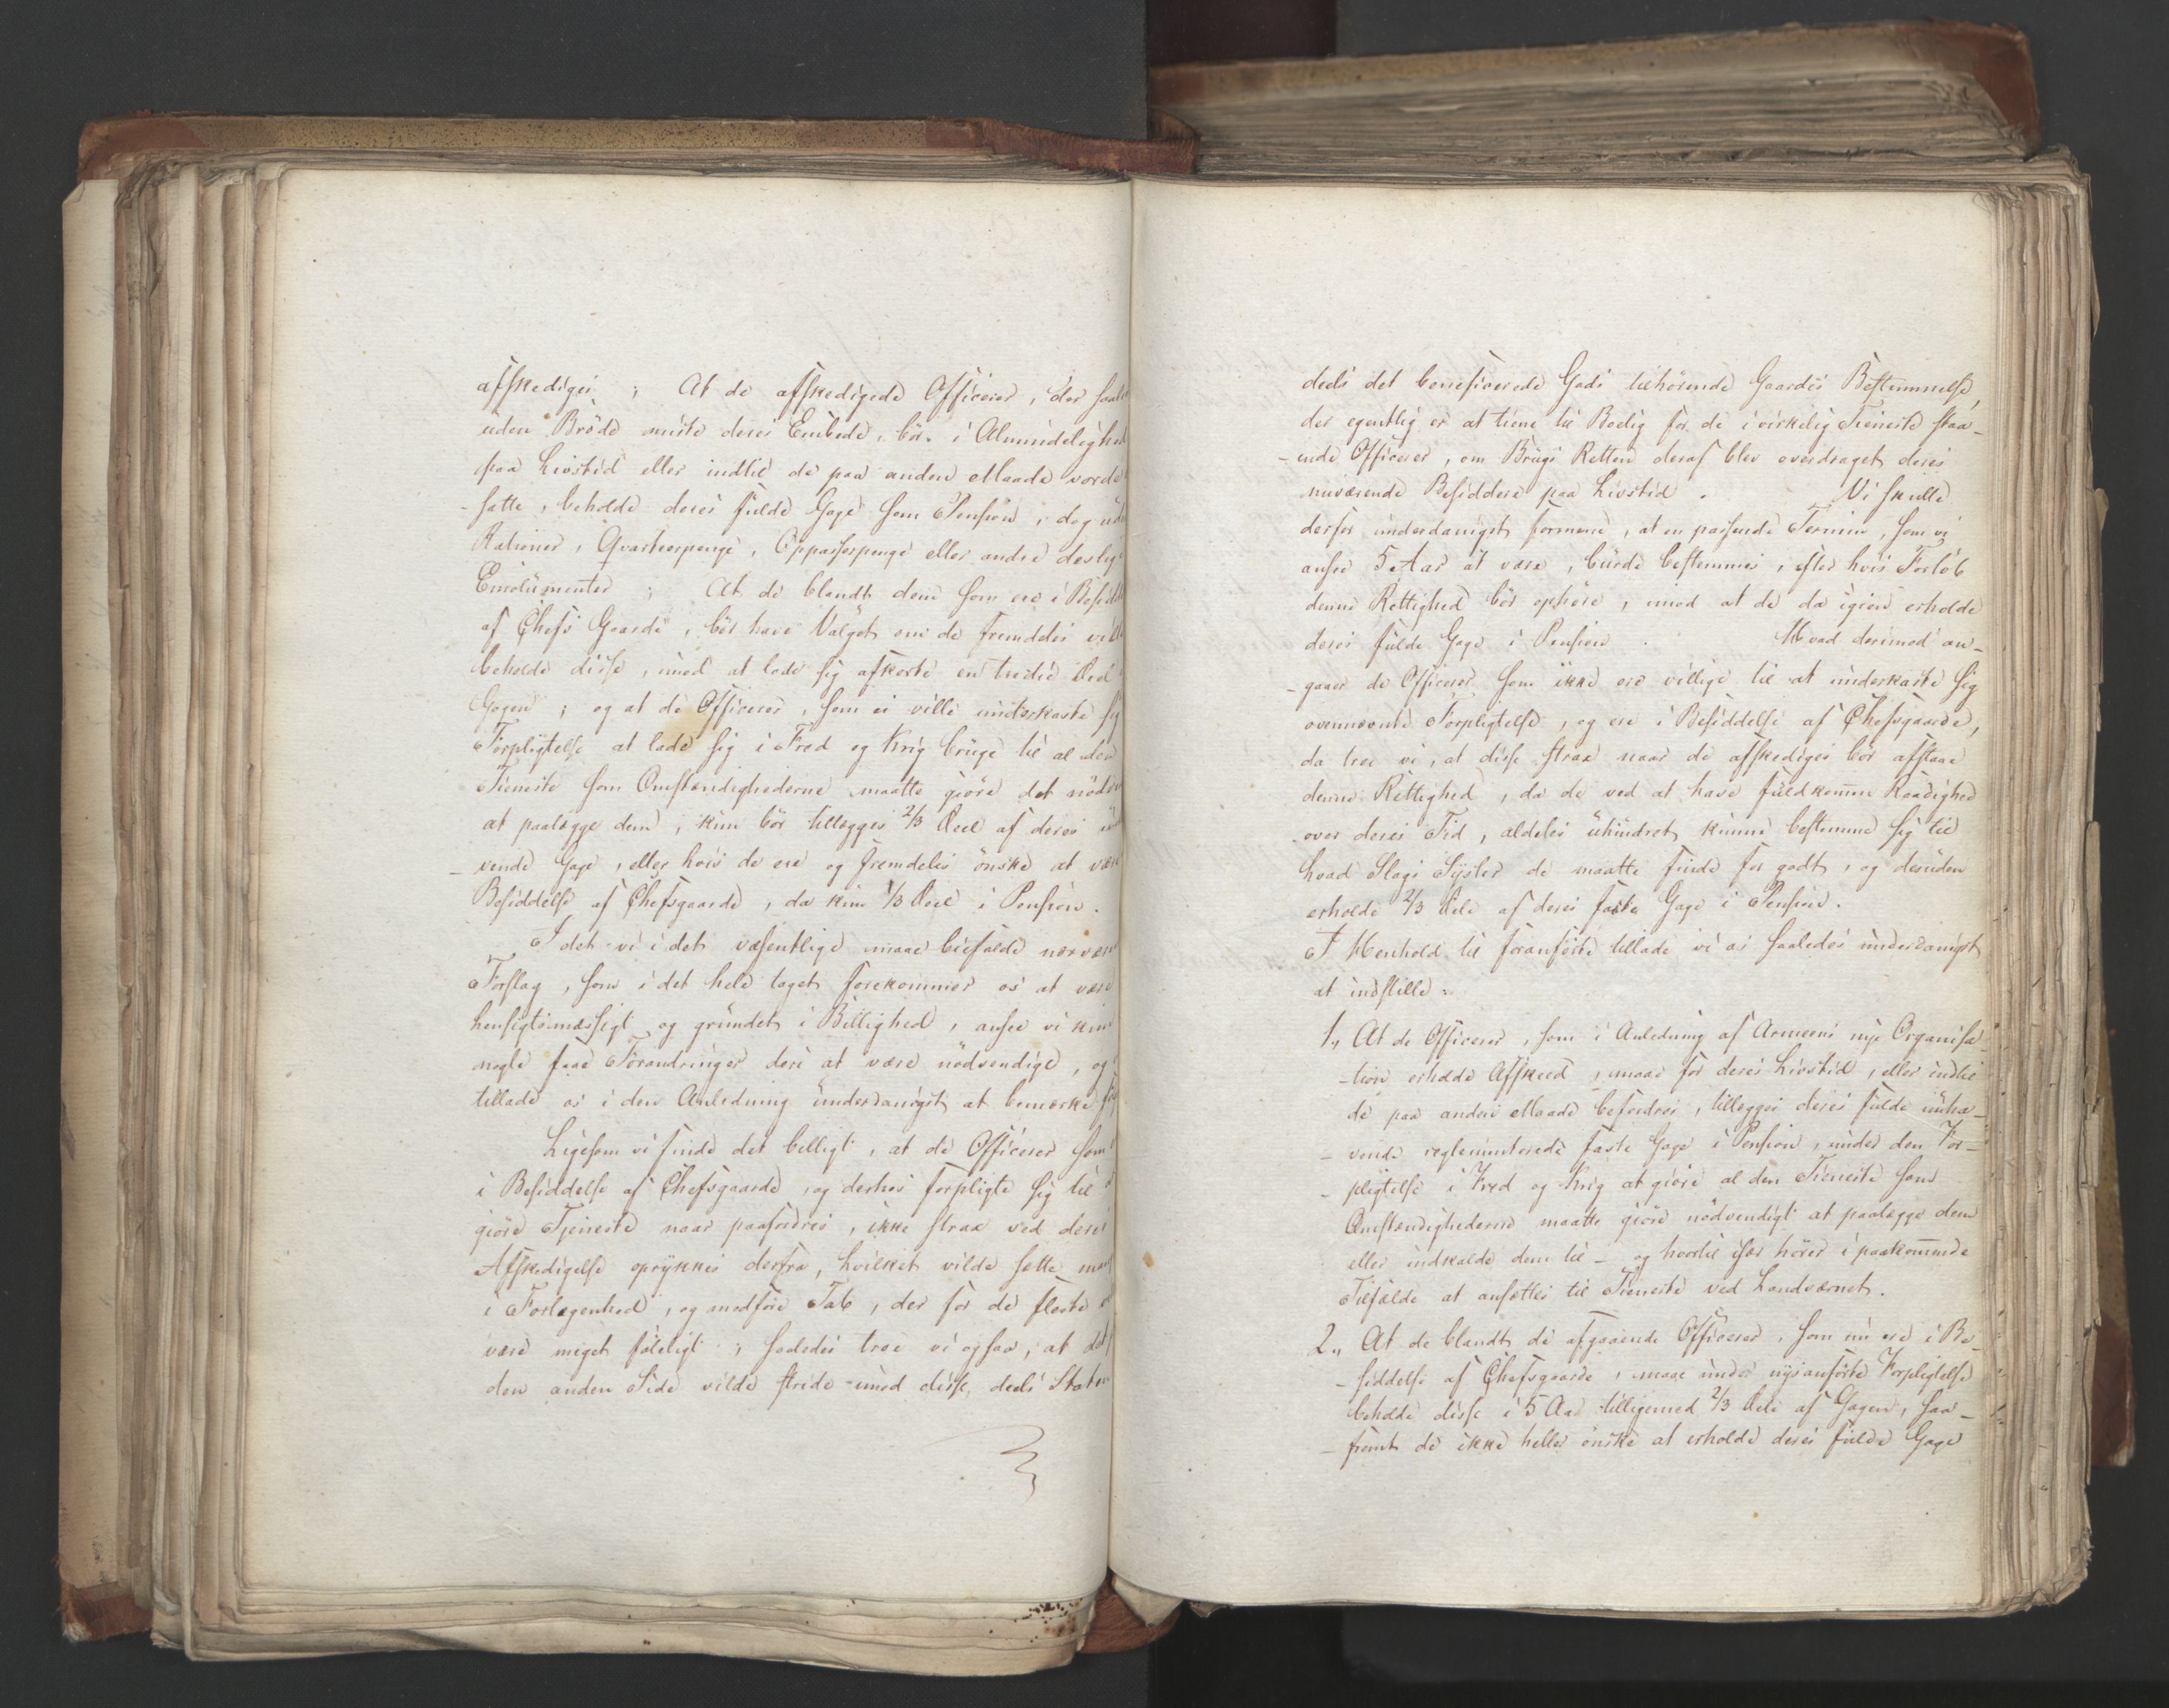 afskediges ; At de afskedigede Officerer, der saal
uden Bröde miste deres Embede, bör i Almindelighed
paa Livstid eller indtil de paa anden Maade vorde
-satte, beholde deres fulde Gage som Pension, dog ude
Rationer, Qvarteerpenge, Oppasserpenge eller andre deslige
Emolumenter ; At de blandt dem som ere i Besidde
af Chefs Gaarde, bör have Valget om de fremdeles ville
beholde disse, imod at lade sig afkorte en tredie Deel
Gagen ; og at de Officerer, som ei ville underkaste sig
Forpligtelse at lade sig i Fred og Krig bruge til al den
Tieneste som Omstændighederne maatte giöre det nödv
at paalægge dem, kun bör tillægges 2/3 Deel af deres
-vende Gage, eller hvis de ere og fremdeles önske at være
Besiddelse af Chefsgaarde, da kun 1/3 Deel i Pension.
I det vi i det væsentlige maae biefalde nærvær
Forslag, som i det hele taget forekommer os at være
hensigtsmæssigt og grundet i Billighed, ansee vi kun
nogle faae Forandringer deri at være nödvendige, og
tillade os i den Anledning underdanigst at bemærke
Ligesom vi finde det billigt, at de Officerer som
i Besiddelse af Chefsgaarde, og derhos forpligte sig til
giöre Tjeneste naar paafordres, ikke strax ved deres
Afskedigelse oprykkes derfra, hvilket vilde sætte
i Forlegenhed, og medföre Tab, der for de fleste
være meget föleligt ; saaledes troe vi ogsaa, at det
den anden Side vilde stride imod disse, deels Staten
deels det beneficerede Gods tilhörende Gaardes Bestemmelse,
der egentlig er at tiene til Boelig for de i virkelig Tieneste staa-
-ende Officerer, om Brugs Retten deraf blev overdraget deres
nuværende Besiddere paa Livstid. Vi skulle
derfor underdanigst formene, at en passende Termin, som vi
ansee 5 Aar at være, burde bestemmes, efter hvis Forlöb
denne Rettighed bör ophöre, imod at de da igien erholde
deres fulde Gage i Pension. Hvad derimod an-
-gaaer de Officerer som ikke ere villige til at underkaste sig
ovennævnte Forpligtelse, og ere i Besiddelse af Chefsgaarde,
da troe vi, at disse strax naar de afskediges bör afstaae
denne Rettighed, da de ved at have fuldkommen Raadighed
over deres Tid, aldeles uhindret kunne bestemme sig til
hvad Slags Sysler de maatte finde for godt, og desuden
erholde 2/3 Dele af deres faste Gage i Pension.
I Henhold til foranförte tillade vi os saaledes underdanigst
at indstille:
1., At de Officerer, som i Anledning af Armeens nye Organisa-
-tion erholde Afskeed, maae for deres Livstid, eller indtil
de paa anden Maade befordres, tillægges deres fulde inha-
-vende reglementerede faste Gage i Pension, under den For-
-pligtelse i Fred og Krig at giöre al den Tieneste som
Omstændighederne maatte giöre nödvendigt at paalægge dem
eller indkalde dem til - og hvortil især hörer i paakommende
Tilfælde at ansættes til Tieneste ved Landværnet.
2., At de blandt de afgaaende Officerer, som nu ere i Be-
-siddelse af Chefsgaarde, maae under nysanförte Forpligtelse
beholde disse i 5 Aar tilligemed 2/3 Dele af Gagen, saa-
-fremt de ikke heller önske at erholde deres fulde Gage